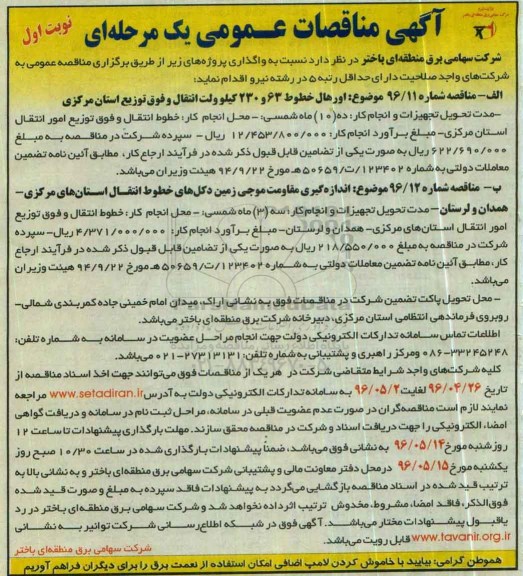 آگهی مناقصات عمومی یک مرحله‌ای
نوبت اول
شرکت سهامی برق منطقه‌ای باختر در نظر دارد نسبت به واگذاری پروژه‌های زیر از طریق برگزاری مناقصه عمومی به
شرکت‌های واجد صلاحیت دارای حداقل رتبه ۵ در رشته نیرو اقدام نماید:
الف- مناقصه شماره ۹۶/۱۱ موضوع: اورهال خطوط ۶۳ و ۲۳۰ کیلو ولت انتقال و فوق توزیع استان مرکزی
-مدت تحویل تجهیزات و انجام کار: ده (۱۰) ماه شمسی؛ - محل انجام کار: خطوط انتقال و فوق توزیع امور انتقال
استان مرکزی- مبلغ برآورد انجام کار: ۱۲/۴۵۳/۸۰۰/۰۰۰ ریال - سپرده شرکت در مناقصه به مبلغ
۶۲۲/۶۹۰/۰۰۰ ریال به صورت یکی از تضامین قابل قبول ذکر شده در فرآیند ارجاع کار، مطابق آئین نامه تضمین
معاملات دولتی به شماره ۱۲۳۴۰۲/ت۵۰۶۵۹هـ مورخ ۹۴/۹/۲۲ هیئت وزیران می‌باشد.
ب- مناقصه شماره ۹۶/۱۲ موضوع: اندازه گیری مقاومت موجی زمین دکل‌های خطوط انتقال استان‌های مرکزی-
همدان و لرستان -مدت تحویل تجهیزات و انجام کار: سه (۳) ماه شمسی؛ - محل انجام کار: خطوط انتقال و فوق توزیع
امور انتقال استان‌های مرکزی- همدان و لرستان- مبلغ برآورد انجام کار: ۴/۳۷۱/۰۰۰/۰۰۰ ریال-سپرده
شرکت در مناقصه به مبلغ ۲۱۸/۵۵۰/۰۰۰ ریال به صورت یکی از تضامین قابل قبول ذکر شده در فرآیند ارجاع
کار، مطابق آئین نامه تضمین معاملات دولتی به شماره ۱۲۳۴۰۲/ت۵۰۶۵۹هـ مورخ ۹۴/۹/۲۲ هیئت وزیران
می‌باشد.
- محل تحویل پاکت تضمین شرکت در مناقصات فوق به نشانی اراک، میدان امام خمینی جاده کمربندی شمالی-
روبروی فرماندهی انتظامی استان مرکزی، دبیرخانه شرکت برق منطقه‌ای باختر می‌باشد.
اطلاعات تماس سامانه تدارکات الکترونیکی دولت جهت انجام مراحل عضویت در سامانه به شماره تلفن:
۳۳۲۴۵۲۴۸-۰۸۶ و مرکز راهبری و پشتیبانی به شماره تلفن: ۲۷۳۱۳۱۳۱-۰۲۱ می‌باشد.
کلیه شرکت‌های واجد شرایط متقاضی شرکت در هر یک از مناقصات فوق می‌توانند جهت اخذ اسناد مناقصه از
تاریخ ۹۶/۰۴/۲۶ لغایت ۹۶/۰۵/۲ به سامانه تدارکات الکترونیکی دولت به آدرس www.setadiran.ir مراجعه
نمایند لازم است مناقصه‌گران در صورت عدم عضویت قبلی در سامانه، مراحل ثبت نام در سامانه و دریافت گواهی
امضاء الکترونیکی را جهت دریافت اسناد و شرکت در مناقصه محقق سازند. مهلت بارگذاری پیشنهادات تا ساعت ۱۲
روز شنبه مورخ ۹۶/۰۵/۱۴ به نشانی فوق می‌باشد، ضمناً پیشنهادات بارگذاری شده در ساعت ۱۰/۳۰ صبح روز
یکشنبه مورخ ۹۶/۰۵/۱۵ در محل دفتر معاونت مالی و پشتیبانی شرکت سهامی برق منطقه‌ای باختر و به نشانی بالا به
ترتیب قید شده در اسناد مناقصه بازگشایی می‌گردد به پیشنهادات فاقد سپرده به مبلغ و صورت قید شده
فوق‌الذکر، فاقد امضاء، مشروط، مخدوش ترتیب اثر داده نخواهد شد و شرکت سهامی برق منطقه‌ای باختر در رد
یا قبول پیشنهادات مختار می‌باشد. آگهی فوق در شبکه اطلاع‌رسانی شرکت توانیر به نشانی
www.tavanir.org.ir قابل رویت می‌باشد.
شرکت سهامی برق منطقه‌ای باختر
هموطن گرامی: بیایید با خاموش کردن لامپ اضافی امکان استفاده از نعمت برق را برای دیگران فراهم آوریم